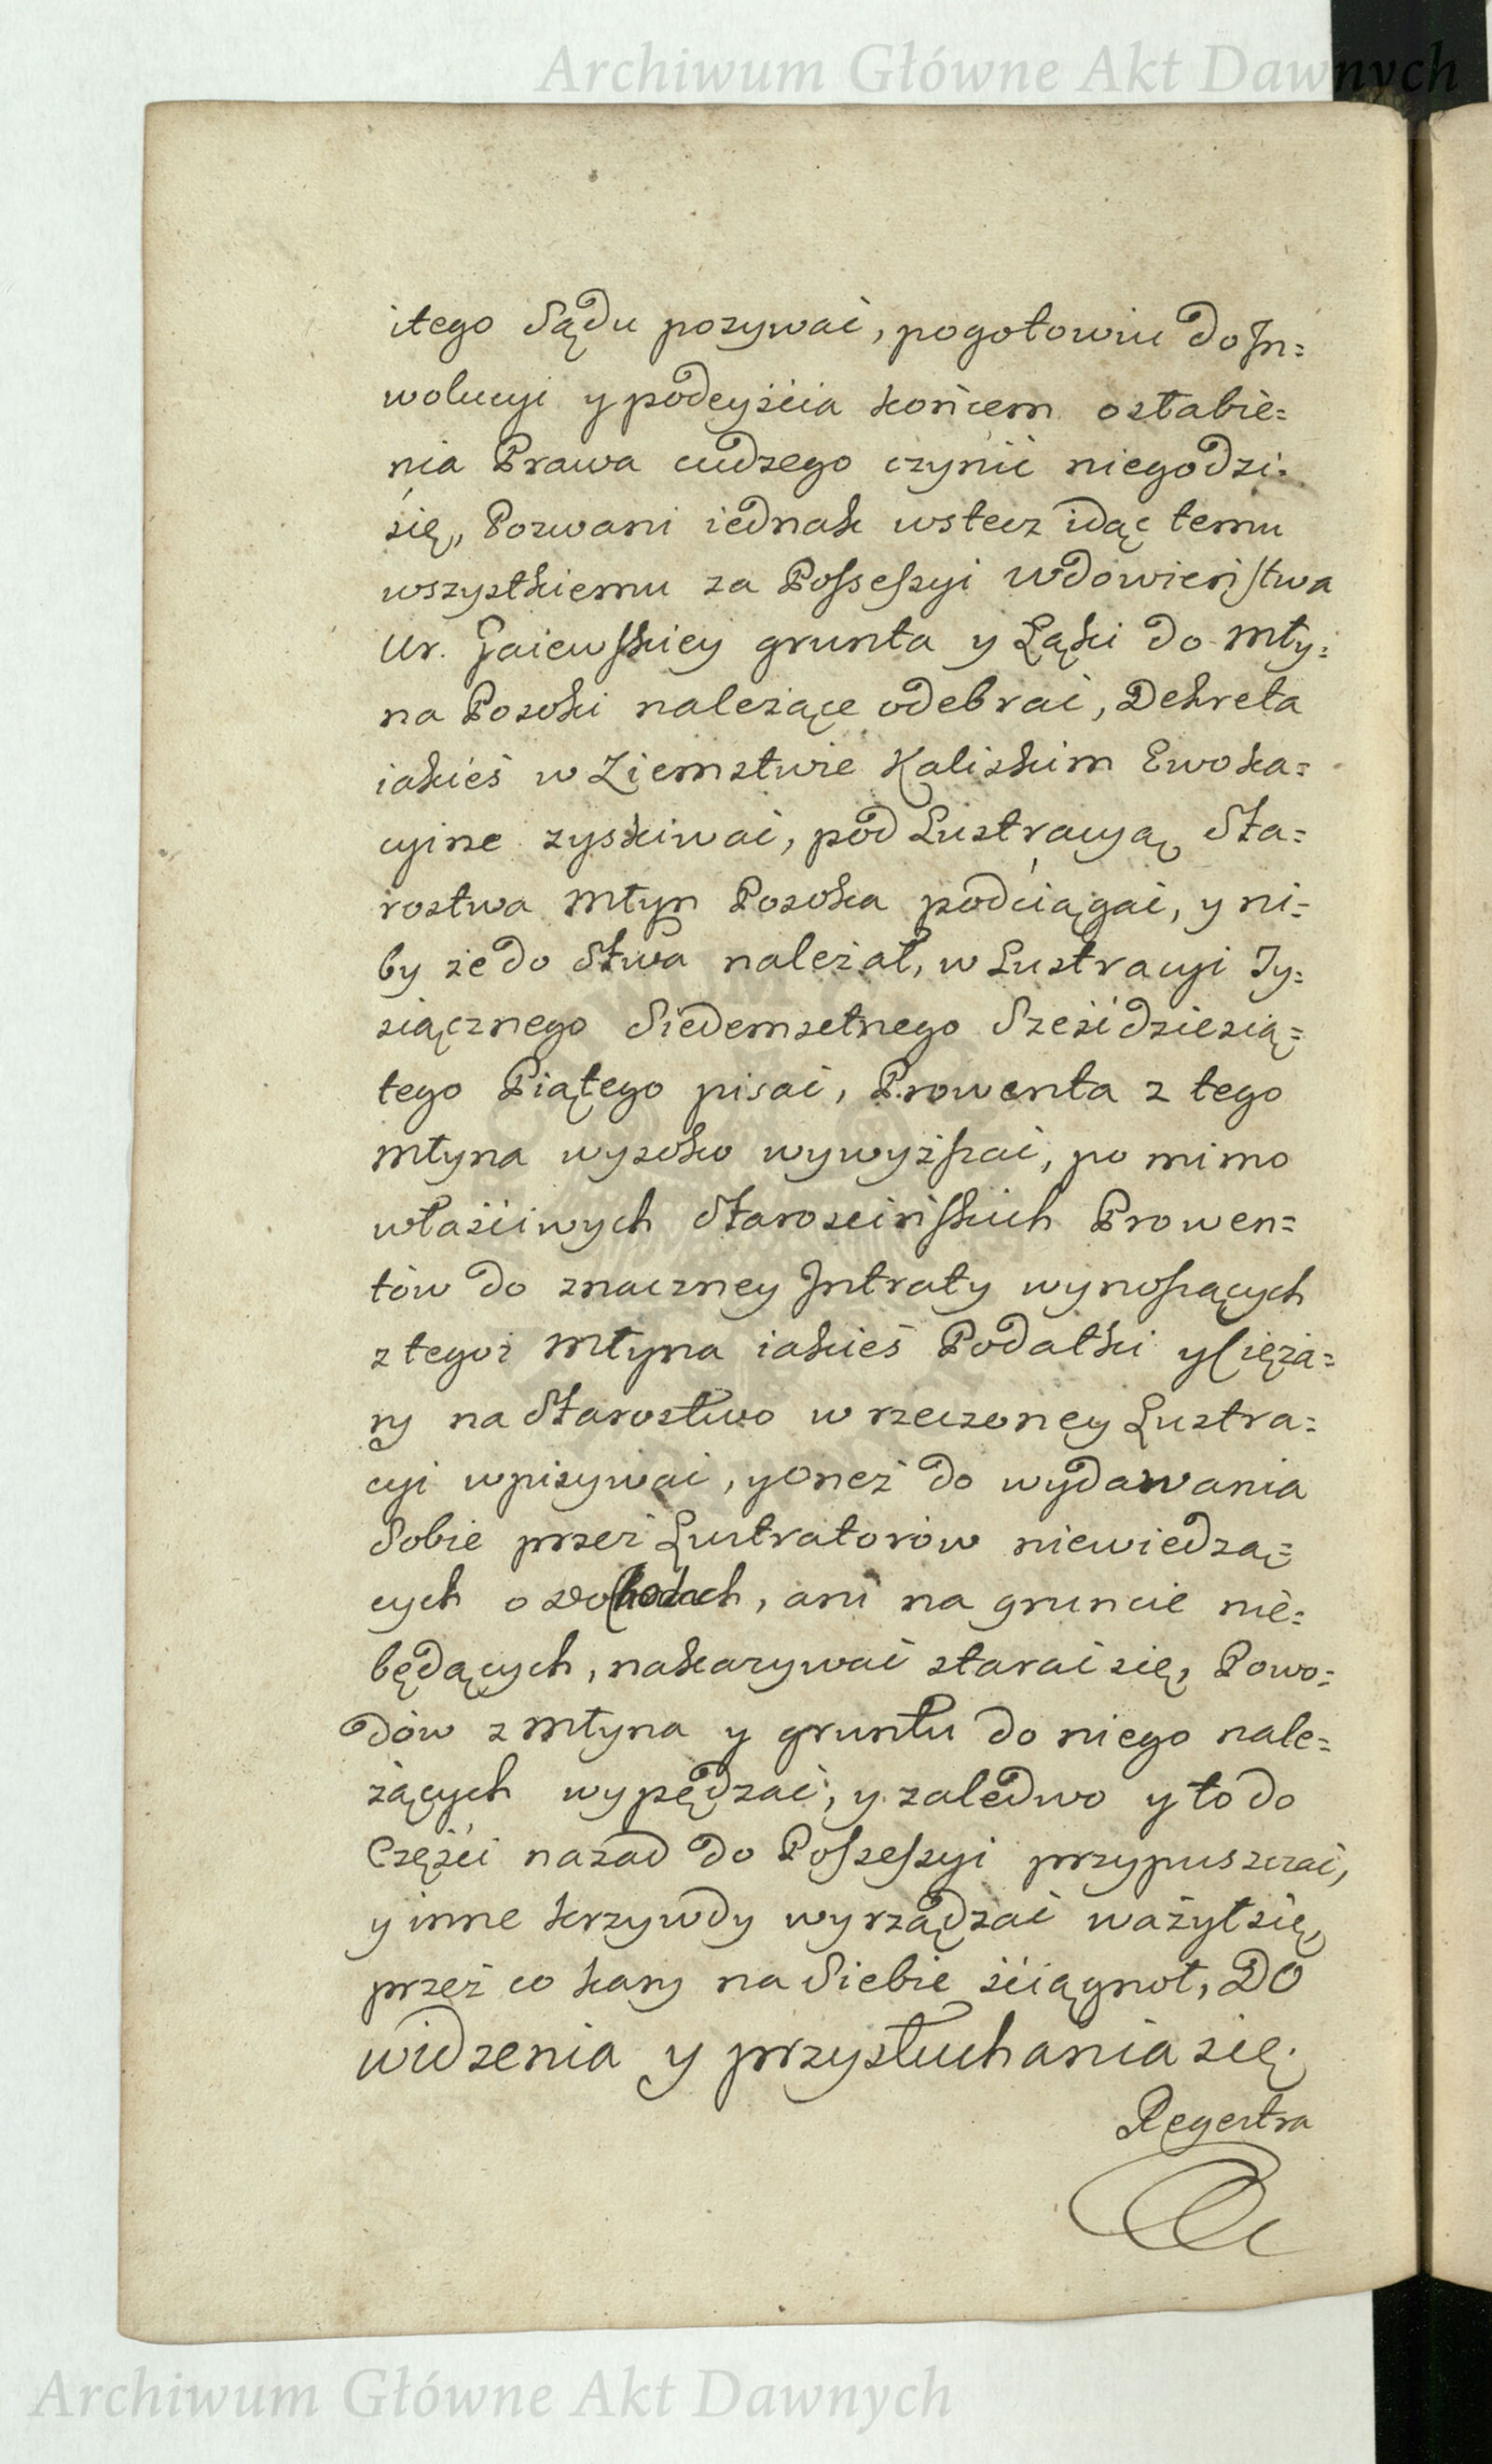 Archiwum Główne Akt Dawnych
itego Sądu pozywać, pogotowiu do Jn=
wolucyi y podeyścia końcem osłabie=
nia Prawa cudzego czynić niegodzi=
się, Pozwani iednak wstecz idąc temu
wszystkiemu za Possessyi wdowieństwa
Ur. Gaiewskiey grunta y Łąki do Mły=
na Posoki należące odebrać, Dekreta
iakieś w Ziemstwie Kaliskim Ewoka=
cyine zyskiwać, pod Lustracyą Sta=
rostwa Młyn Posoka podciągać, y ni=
by że do Stwa należał, w Lustracyi Ty=
siącznego Siedemsetnego Sześćdziesią=
tego Piątego pisać, Prowenta z tego
Młyna wysoko wywyższać, po mimo
właściwych Starościńskich Prowen=
tów do znaczney Jntraty wynoszących
z tegoż Młyna iakieś Podatki y Cięża=
ry na Starostwo w rzeczoney Lustra=
cyi wpisywać, y Oneż do wydawania
Sobie przez Lustratorów niewiedzą=
cych o, ani na gruncie nie=
będących, nakazywać starać się, Powo=
dów z Młyna y gruntu do niego nale=
żących wypędzać, y zaledwo y to do
Części nazad do Possessyi przypuszczać,
y inne krzywdy wyrządzać ważył się,
przez co kary na Siebie ściągnoł, DO
widzenia y przysłuchania się.
Regestra
Archiwum Główne Akt Dawnych